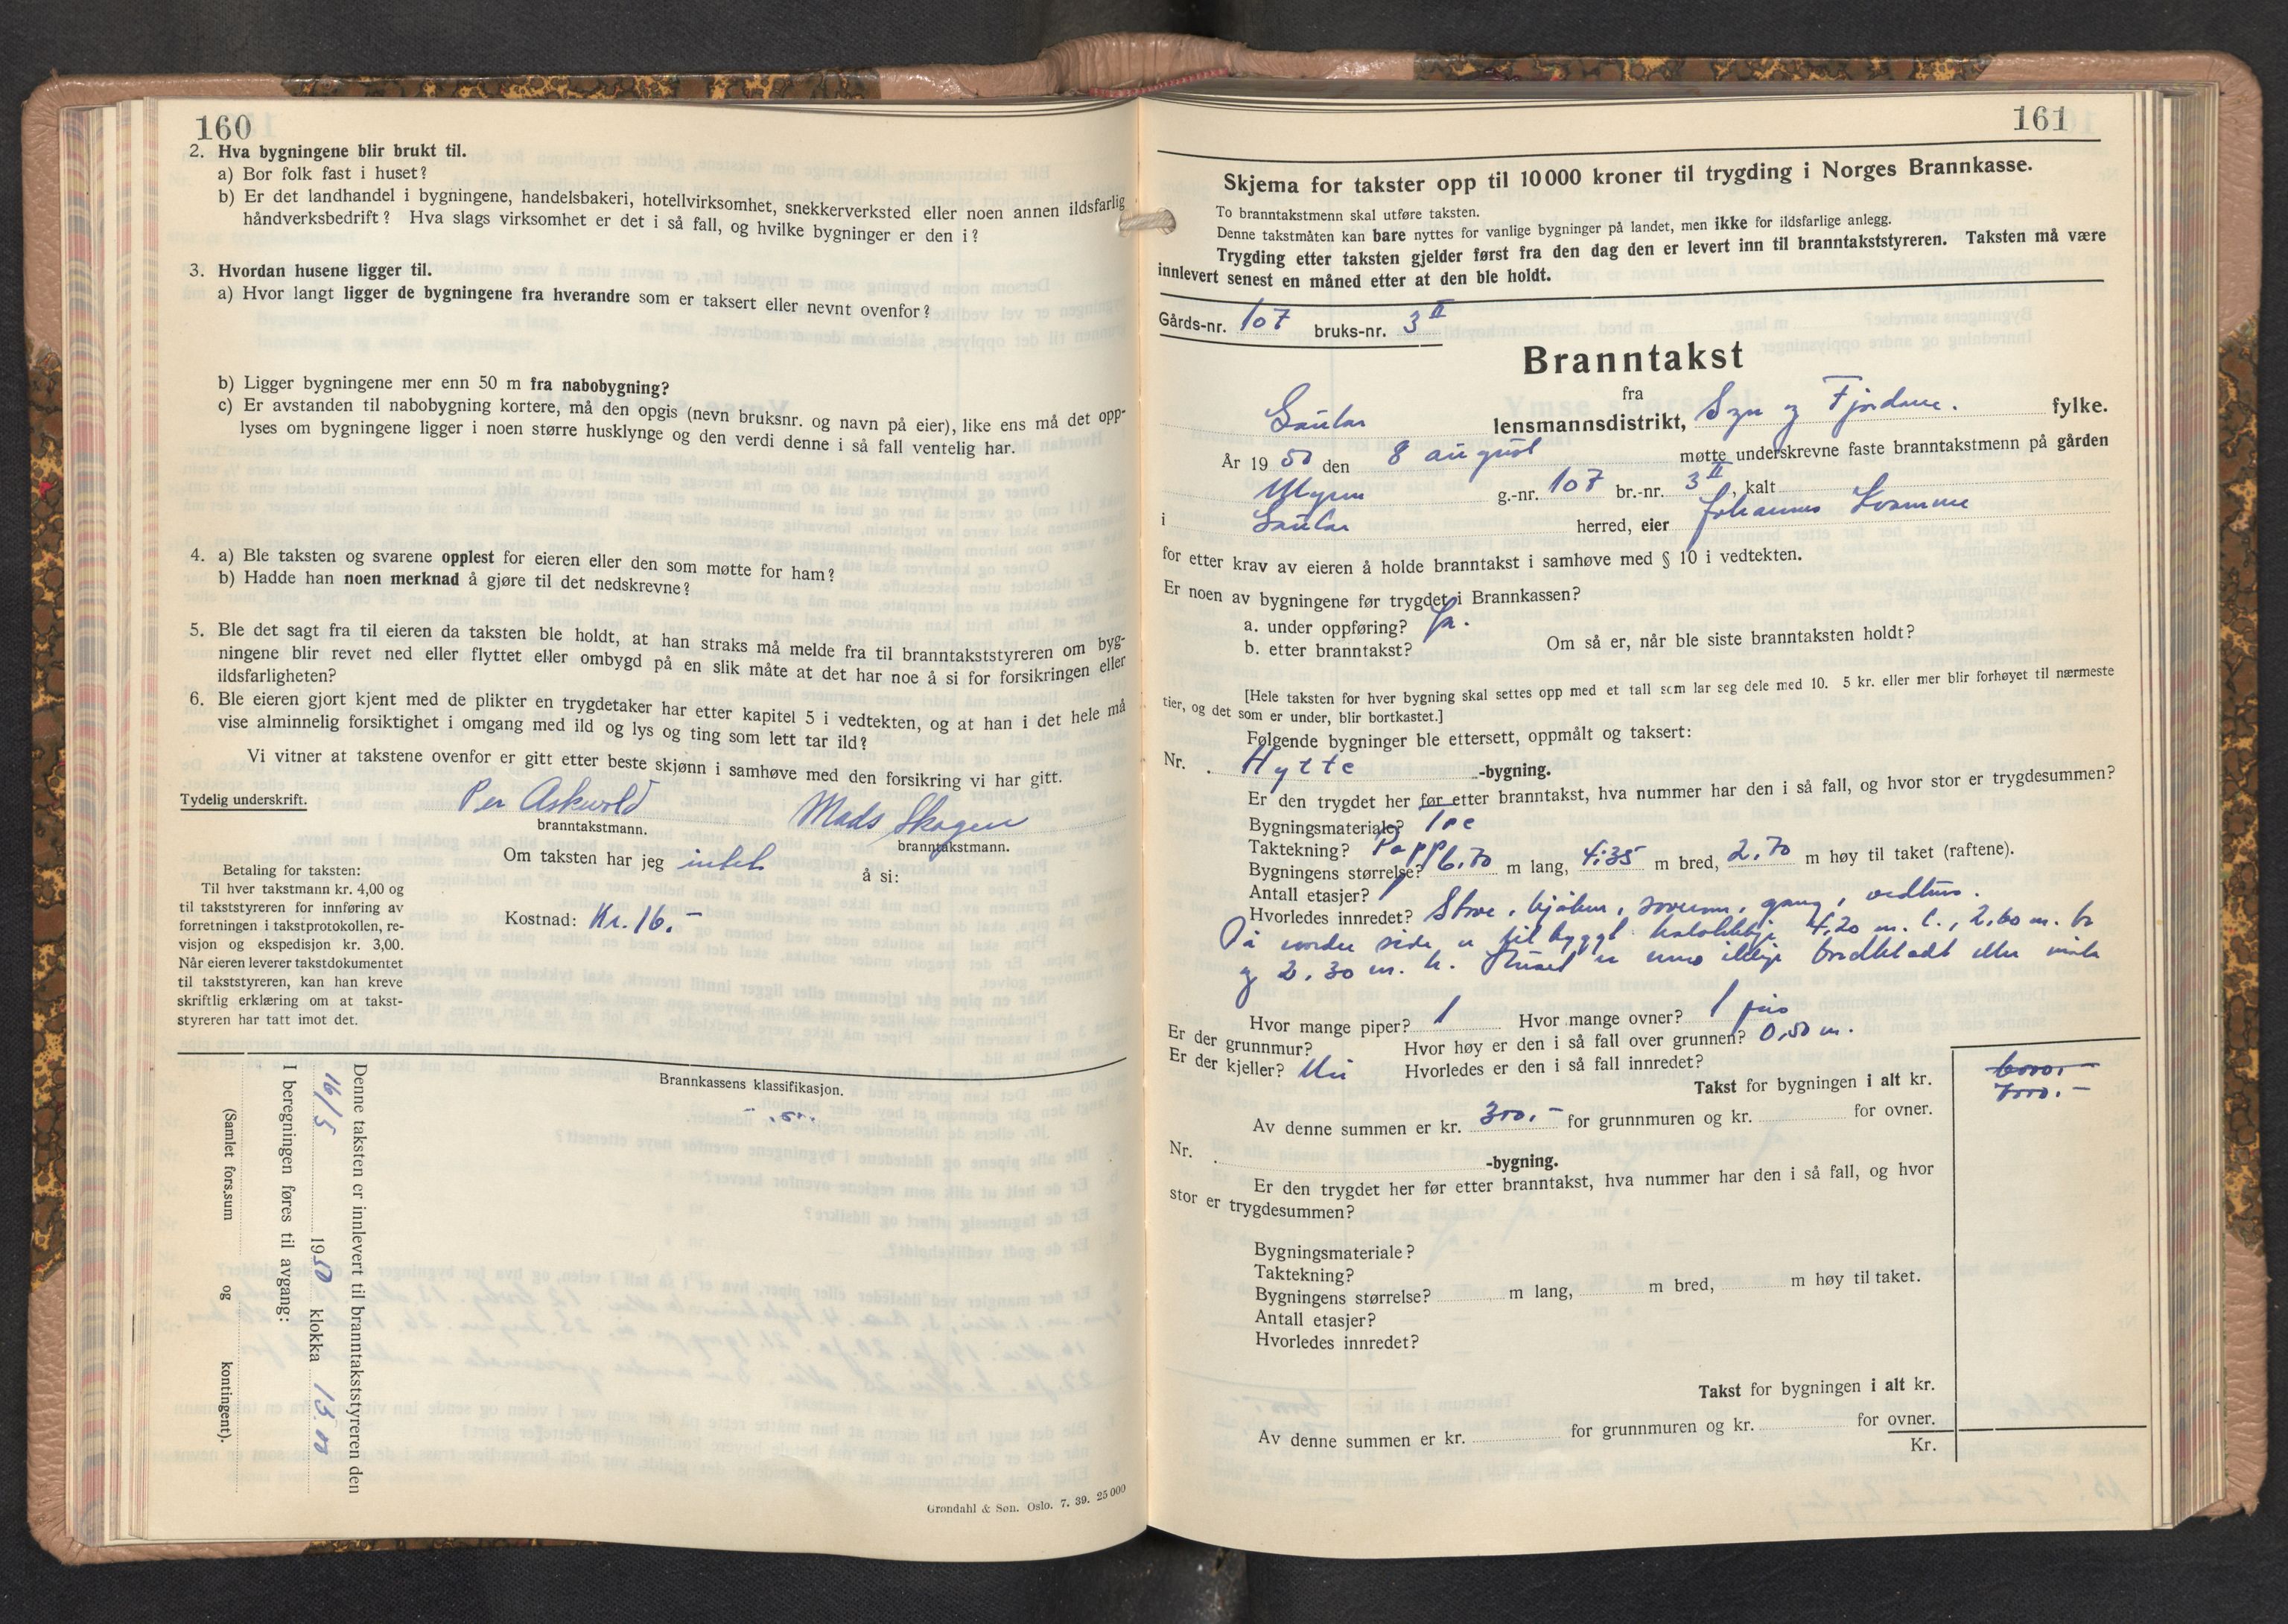 160
2. Hva bygningene blir brukt til.
a) Bor folk fast i huset?
b) Er det landhandel i bygningene, handelsbakeri, hotellvirksomhet, snekkerverksted eller noen annen ildsfarlig
håndverksbedrift? Hva slags virksomhet er det i så fall, og hvilke bygninger er den i?
3. Hvordan husene ligger til.
a) Hvor langt ligger de bygningene fra hverandre som er taksert eller nevnt ovenfor?
b) Ligger bygningene mer enn 50 m fra nabobygning?
c) Er avstanden til nabobygning kortere, må den opgis (nevn bruksnr. og navn på eier), like ens må det opp-
lyses om bygningene ligger i noen større husklynge og den verdi denne i så fall ventelig har.
4. a) Ble taksten og svarene opplest for eieren eller den som møtte for ham?
b) Hadde han noen merknad å gjøre til det nedskrevne?
5. Ble det sagt fra til eieren da taksten ble holdt, at han straks må melde fra til branntakststyreren om byg-
ningene blir revet ned eller flyttet eller ombygd på en slik måte at det har noe å si for forsikringen eller
ildsfarligheten?
6. Ble eieren gjort kjent med de plikter en trygdetaker har etter kapitel 5 i vedtekten, og at han i det hele må
vise alminnelig forsiktighet i omgang med ild og lys og ting som lett tar ild?
Vi vitner at takstene ovenfor er gitt etter beste skjønn i samhøve med den forsikring vi har gitt.
Tydelig underskrift. Per Askvold Mads Skogen
branntakstmann. branntakstmann.
Om taksten har jeg intet å si:
Kostnad: Kr. 16.-
Betaling for taksten:
Til hver takstmann kr. 4,00 og
til takststyreren for innføring av
forretningen i takstprotokollen, re-
visjon og ekspedisjon kr. 3,00.
Når eieren leverer takstdokumentet
til takststyreren, kan han kreve
skriftlig erklæring om at takst-
styreren har tatt imot det.
Brannkassens klassifikasjon.
Denne taksten er innlevert til branntakststyreren den
16/5 1950 klokka 15.00
I beregningen føres til avgang:
(Samlet fors.sum og kontingent).
Grøndahl & Søn. Oslo. 7. 39. 25 000
161
Skjema for takster opp til 10 000 kroner til trygding i Norges Brannkasse.
To branntakstmenn skal utføre taksten.
Denne takstmåten kan bare nyttes for vanlige bygninger på landet, men ikke for ildsfarlige anlegg.
Trygding etter taksten gjelder først fra den dag den er levert inn til branntakststyreren. Taksten må være
innlevert senest en måned etter at den ble holdt.
Gårds-nr. 107 bruks-nr. 3 II
Branntakst
fra
Gaular lensmannsdistrikt, Sogn og Fjordane. fylke.
År 1950 den 8 august møtte underskrevne faste branntakstmenn på gården
g.-nr. 107 br.-nr. 3 II, kalt
i Gaular herred, eier Johannes Kvamme
for etter krav av eieren å holde branntakst i samhøve med § 10 i vedtekten.
Er noen av bygningene før trygdet i Brannkassen?
a. under oppføring? Ja.
b. etter branntakst? Om så er, når ble siste branntaksten holdt?
[Hele taksten for hver bygning skal settes opp med et tall som lar seg dele med 10. 5 kr. eller mer blir forhøyet til nærmeste
tier, og det som er under, blir bortkastet.]
Følgende bygninger ble ettersett, oppmålt og taksert:
Nr. Hytte -bygning.
Er den trygdet her før etter branntakst, hva nummer har den i så fall, og hvor stor er trygdesummen?
Bygningsmateriale? Tre
Taktekning? Papp
Bygningens størrelse? 6.70 m lang, 4.35 m bred, 2.70 m høy til taket (raftene).
Antall etasjer? 1
Hvorledes innredet? Stove, kjøken, soverom, gang, vedhus.
På nordre side er tilbygget 4,20 m. l., 2,60 m. br
og 2,30 m. h. Huset er
Hvor mange piper? 1 Hvor mange ovner? 1
Er der grunnmur? Hvor høy er den i så fall over grunnen? 0,50 m.
Er der kjeller? Nei Hvorledes er den i så fall innredet?
Takst for bygningen i alt kr. 6000.- 7000.-
Av denne summen er kr. 300.- for grunnmuren og kr. for ovner.
Nr. -bygning.
Er den trygdet her før etter branntakst, hva nummer har den i så fall, og hvor
stor er trygdesummen?
Bygningsmateriale?
Taktekning?
Bygningens størrelse? m lang, m bred, m høy til taket.
Antall etasjer?
Hvorledes innredet?
Takst for bygningen i alt kr.
Av denne summen er kr. for grunnmuren og kr. for ovner.
Kr.